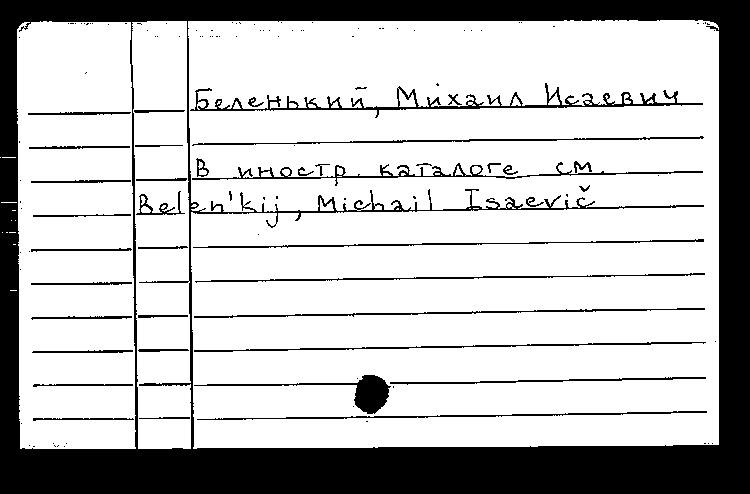 Беленький, Михаил Исаевич
В иностр. каталоге см.
Belen'kij, Michail Isaevič